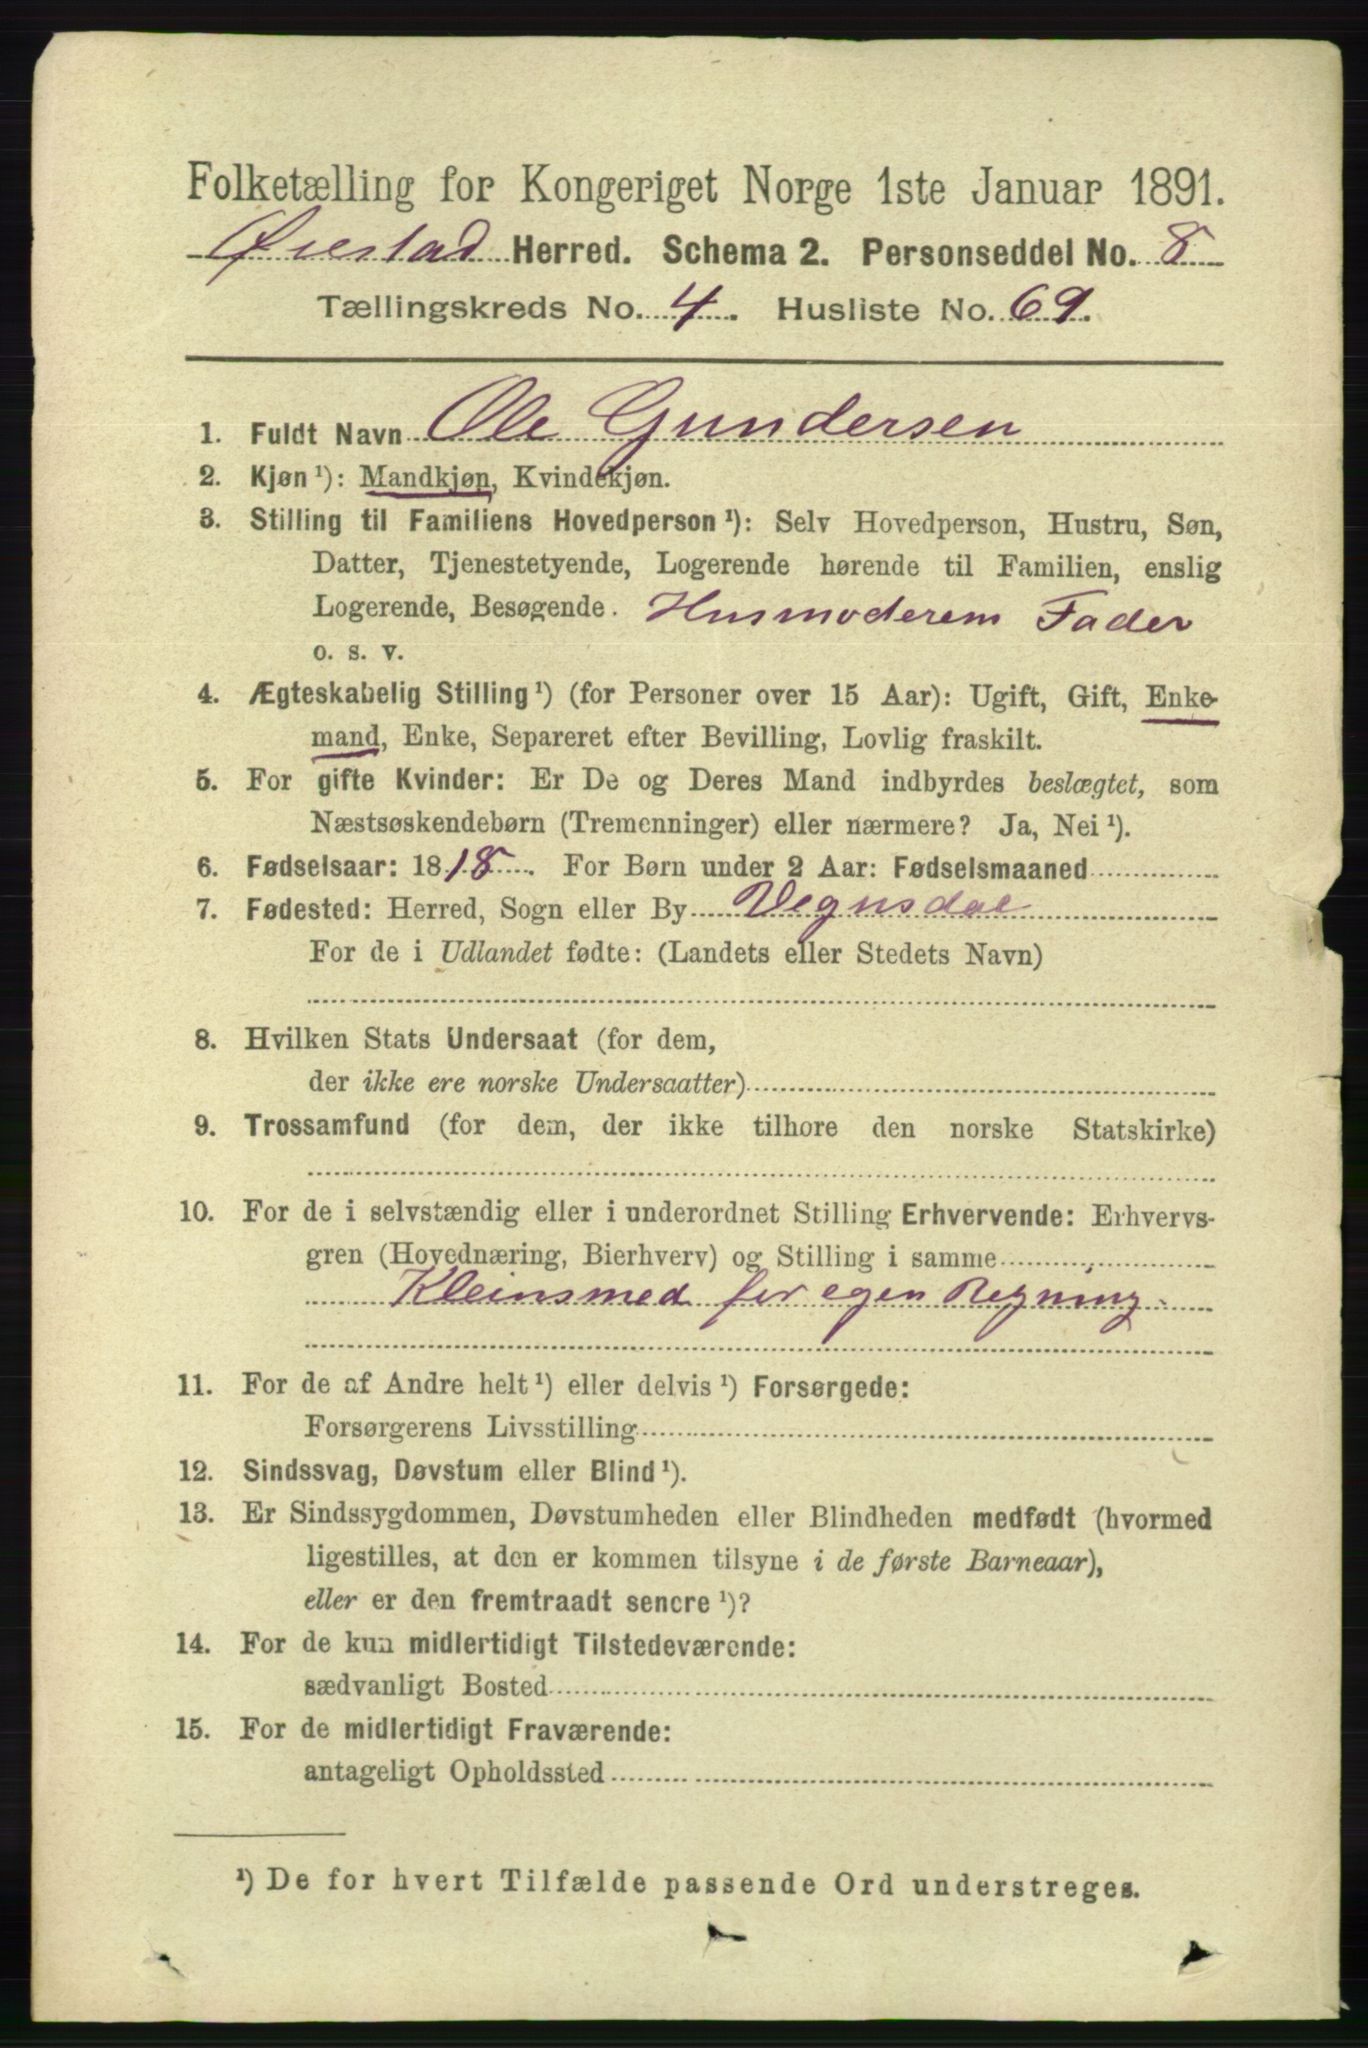 Folketælling for Kongeriget Norge 1ste Januar 1891.
Øiestad Herred. Schema 2. Personseddel No. 8
Tællingskreds No. 4. Husliste No. 69.
1. Fuldt Navn Ole Gundersen
2. Kjøn ¹): Mandkjøn, Kvindekjøn.
3. Stilling til Familiens Hovedperson ¹): Selv Hovedperson, Hustru, Søn,
Datter, Tjenestetyende, Logerende hørende til Familien, enslig
Logerende, Besøgende. Husmoderens Fader
o. s. v.
4. Ægteskabelig Stilling ¹) (for Personer over 15 Aar): Ugift, Gift, Enke-
mand, Enke, Separeret efter Bevilling, Lovlig fraskilt.
5. For gifte Kvinder: Er De og Deres Mand indbyrdes beslægtet, som
Næstsøskendebørn (Tremenninger) eller nærmere? Ja, Nei ¹).
6. Fødselsaar: 1818. For Børn under 2 Aar: Fødselsmaaned
7. Fødested: Herred, Sogn eller By Vegusdal
For de i Udlandet fødte: (Landets eller Stedets Navn)
8. Hvilken Stats Undersaat (for dem,
der ikke ere norske Undersaatter)
9. Trossamfund (for dem, der ikke tilhøre den norske Statskirke)
10. For de i selvstændig eller i underordnet Stilling Erhvervende: Erhvervs-
gren (Hovednæring, Bierhverv) og Stilling i samme
Kleinsmed for egen Regning
11. For de af Andre helt ¹) eller delvis ¹) Forsørgede:
Forsørgerens Livsstilling
12. Sindssvag, Døvstum eller Blind ¹).
13. Er Sindssygdommen, Døvstumheden eller Blindheden medfødt (hvormed
ligestilles, at den er kommen tilsyne i de første Barneaar),
eller er den fremtraadt senere ¹)?
14. For de kun midlertidigt Tilstedeværende:
sædvanligt Bosted
15. For de midlertidigt Fraværende:
antageligt Opholdssted
¹) De for hvert Tilfælde passende Ord understreges.